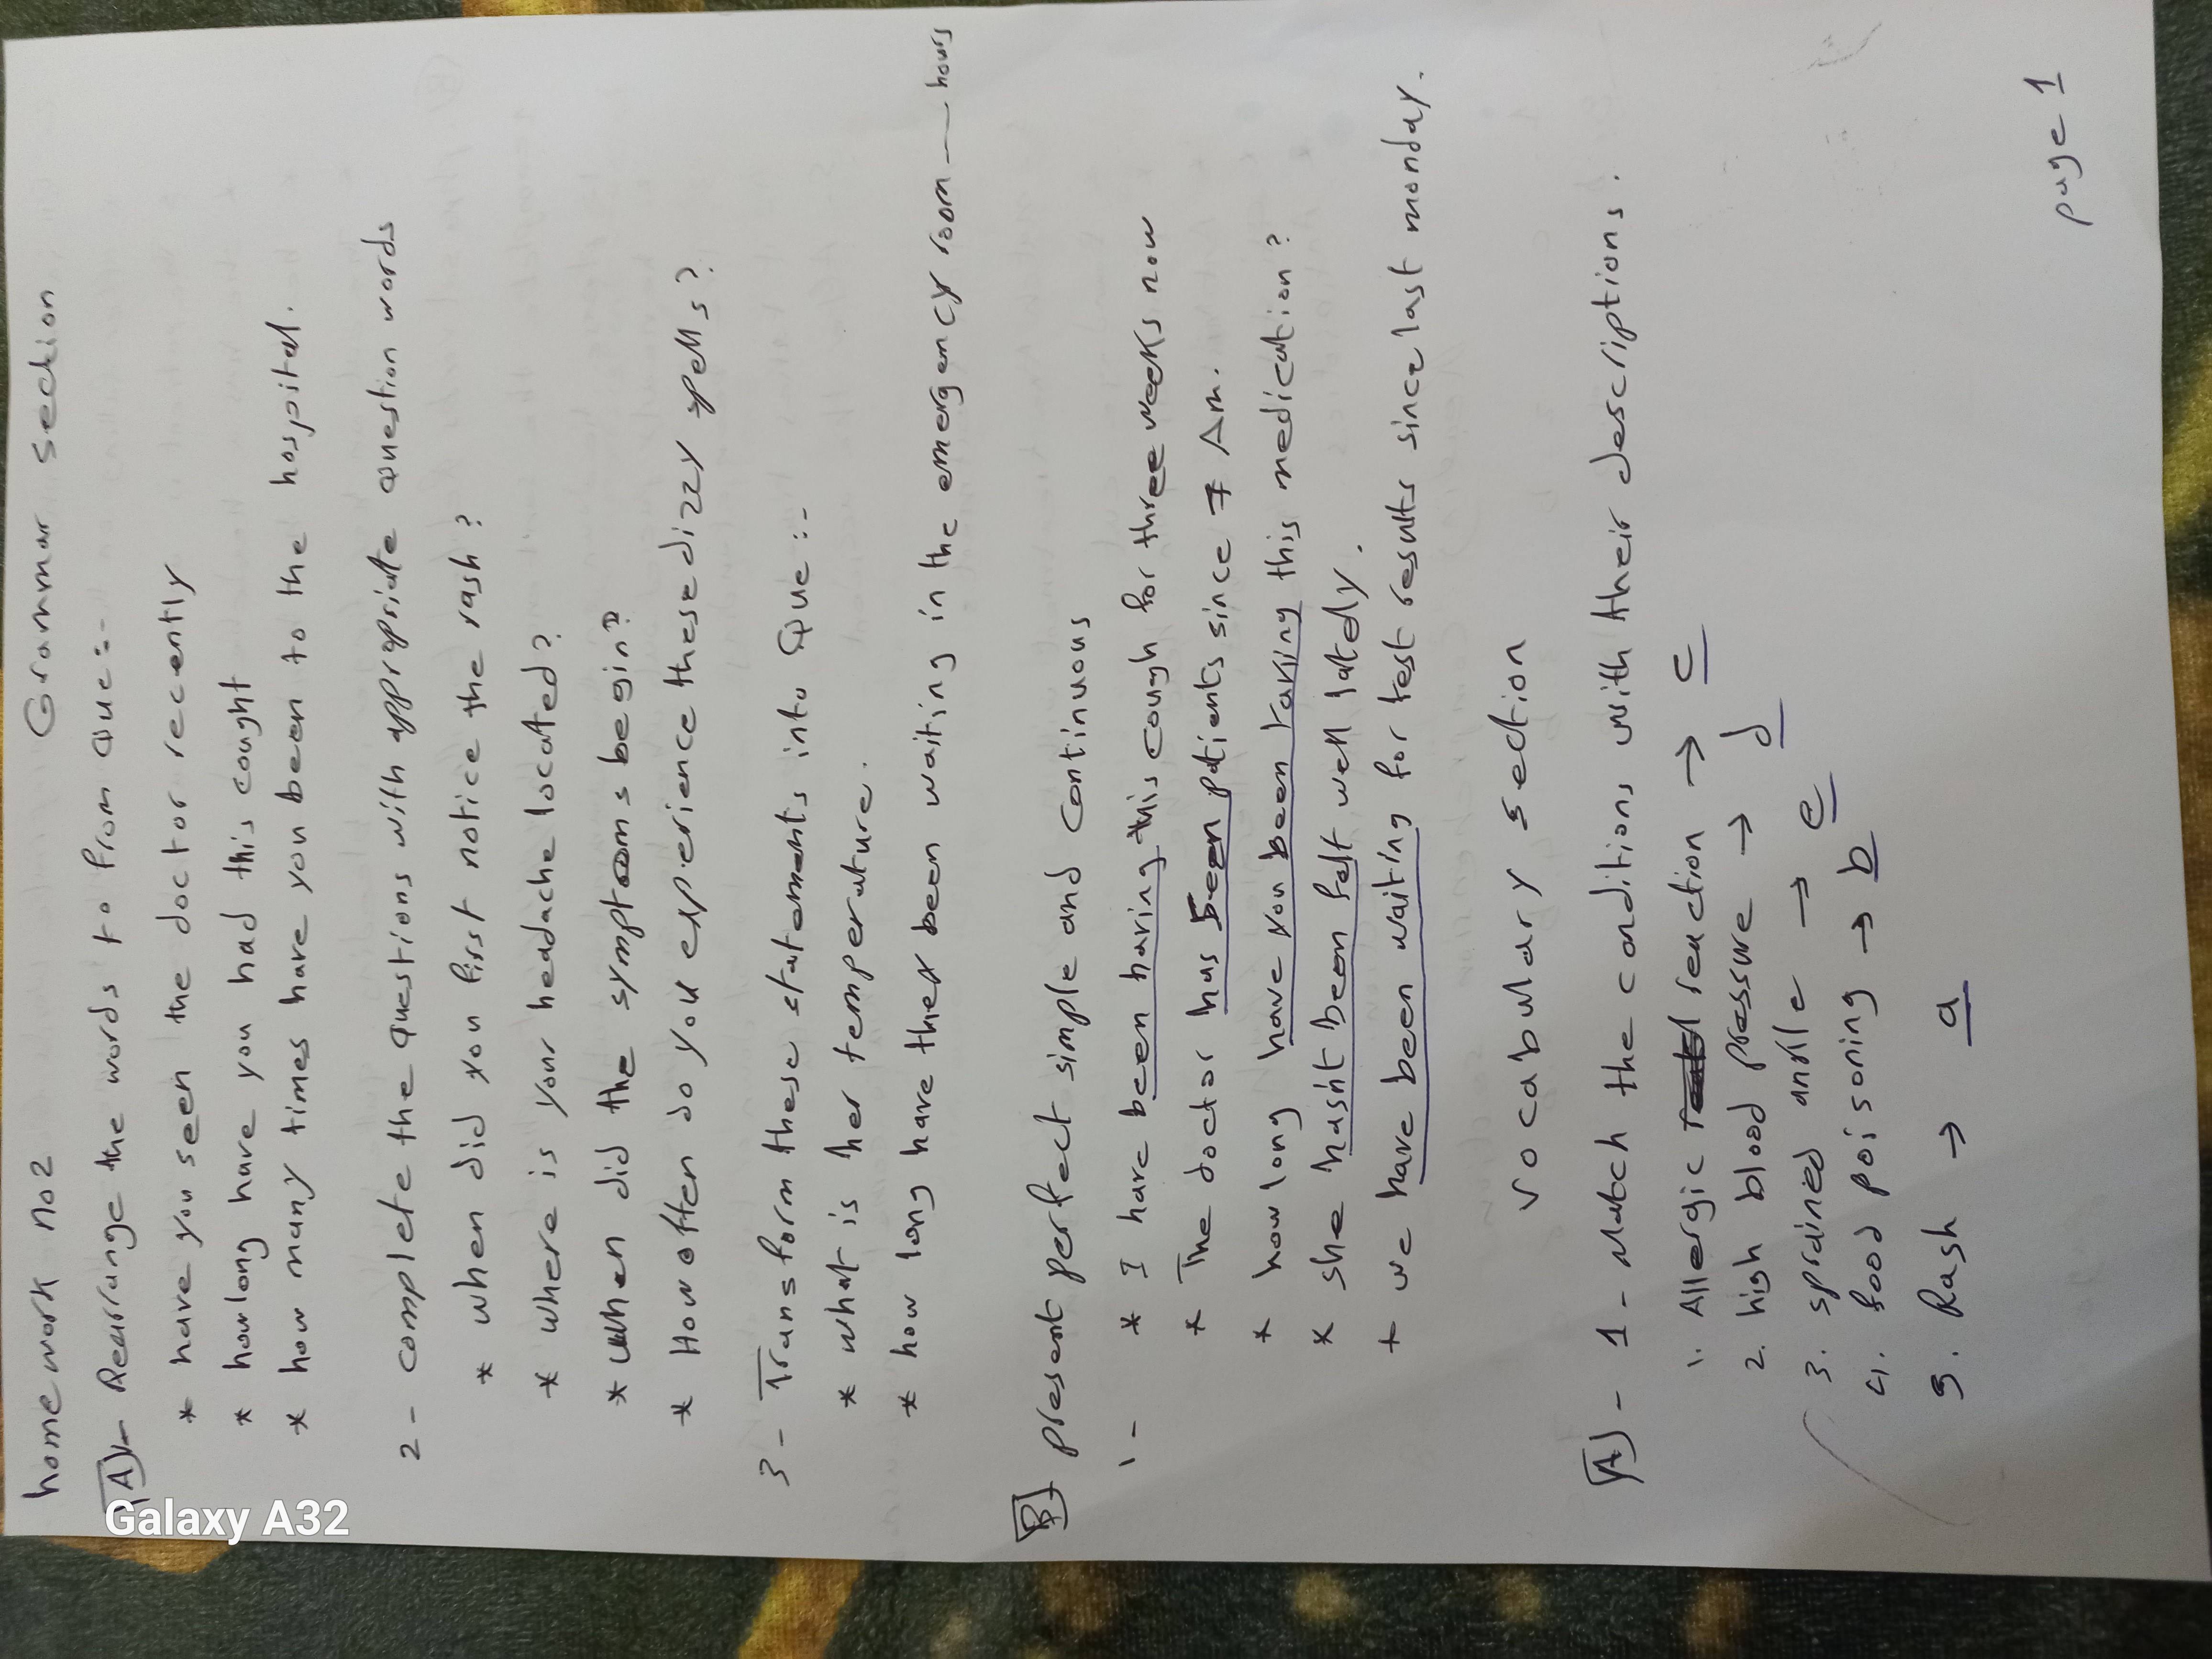 home work no2 Grammar Section
A)- Rearrange the words to from Que:-
* have you seen the doctor recently
* how long have you had this cought
* how many times have you been to the hospital.
2 - complete the questions with appropriate question words
* when did you first notice the rash?
* where is your headache located?
* when did the symptoms begin?
* How often do you experience these dizzy spells?
3 - Transform these statements into Que:-
* what is her temperature.
* how long have they been waiting in the emergency room — hours
B present perfect simple and continuous
1 - * I have been having this cough for three weeks now
* The doctor has seen patients since 7 Am.
* how long have you been taking this medication?
* she hasn't been felt well lately.
* we have been waiting for test results since last monday.
vocabulary section
A) - 1 - Match the conditions with their descriptions.
1. Allergic reaction → c
2. high blood pressure → d
3. sprained ankle → e
4. food poisoning → b
5. Rash → a
page 1
Galaxy A32